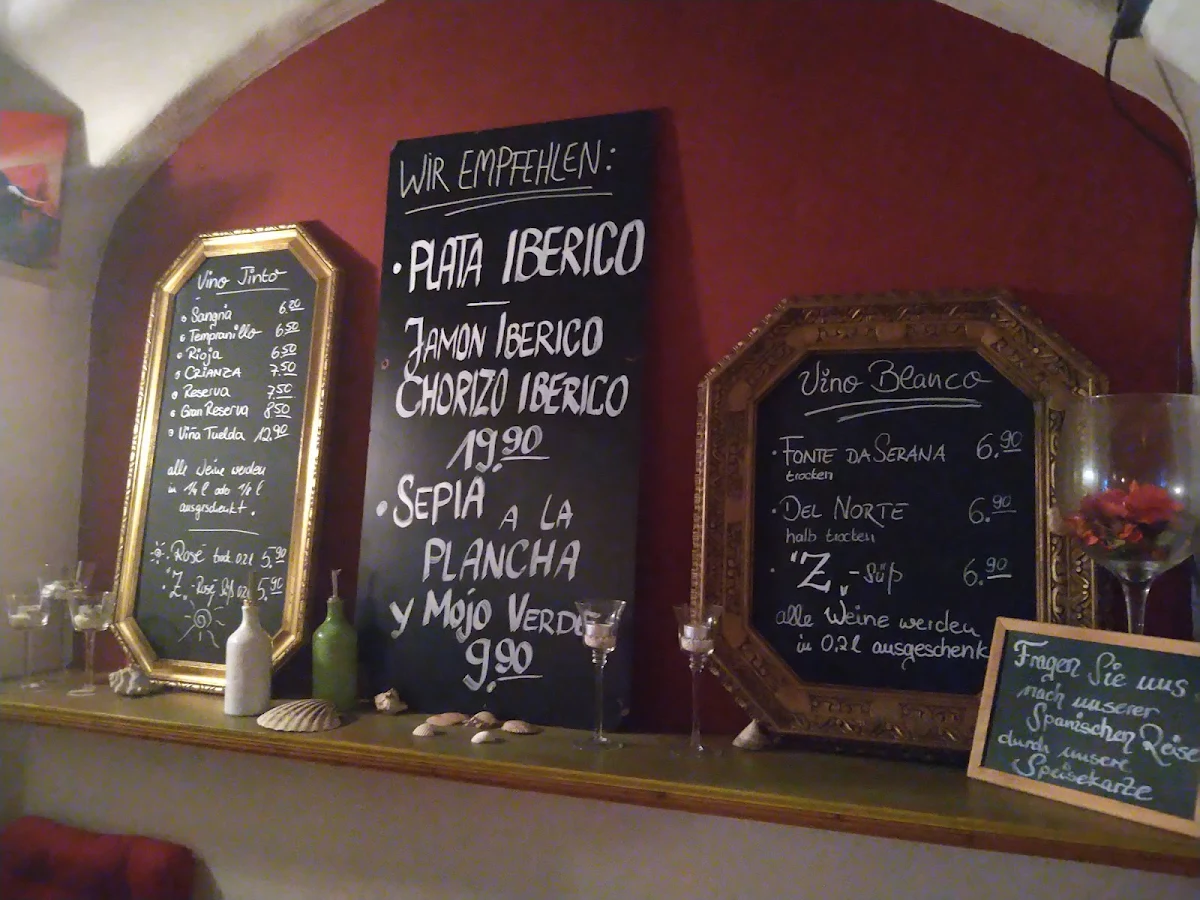 Vino Tinto
Sangria 6.20
Tempranillo 6.50
Rioja 6.50
CRIANZA 7.50
Reserva 7.50
Gran Reserva 8.50
Viña Tuelda 12.90
alle Weine werden
in 1/4 l odo 1/8 l
ausgeschenkt.
Rosé trock. 0,2 l 5.90
"Z"-Rosé Süß 0,2 l 5.90
WIR EMPFEHLEN:
• PLATA IBERICO
—
JAMON IBERICO
CHORIZO IBERICO
19.90
• SEPIA A LA
PLANCHA
y MOJO VERDE
9.90
Vino Blanco
• FONTE DA SERANA 6.90
trocken
• DEL NORTE 6.90
halb trocken
• "Z"-Süß 6.90
alle Weine werden
in 0,2 l ausgeschenk
Fragen Sie uns
nach unserer
Spanischen Reise
durch unsere
Speisekarte